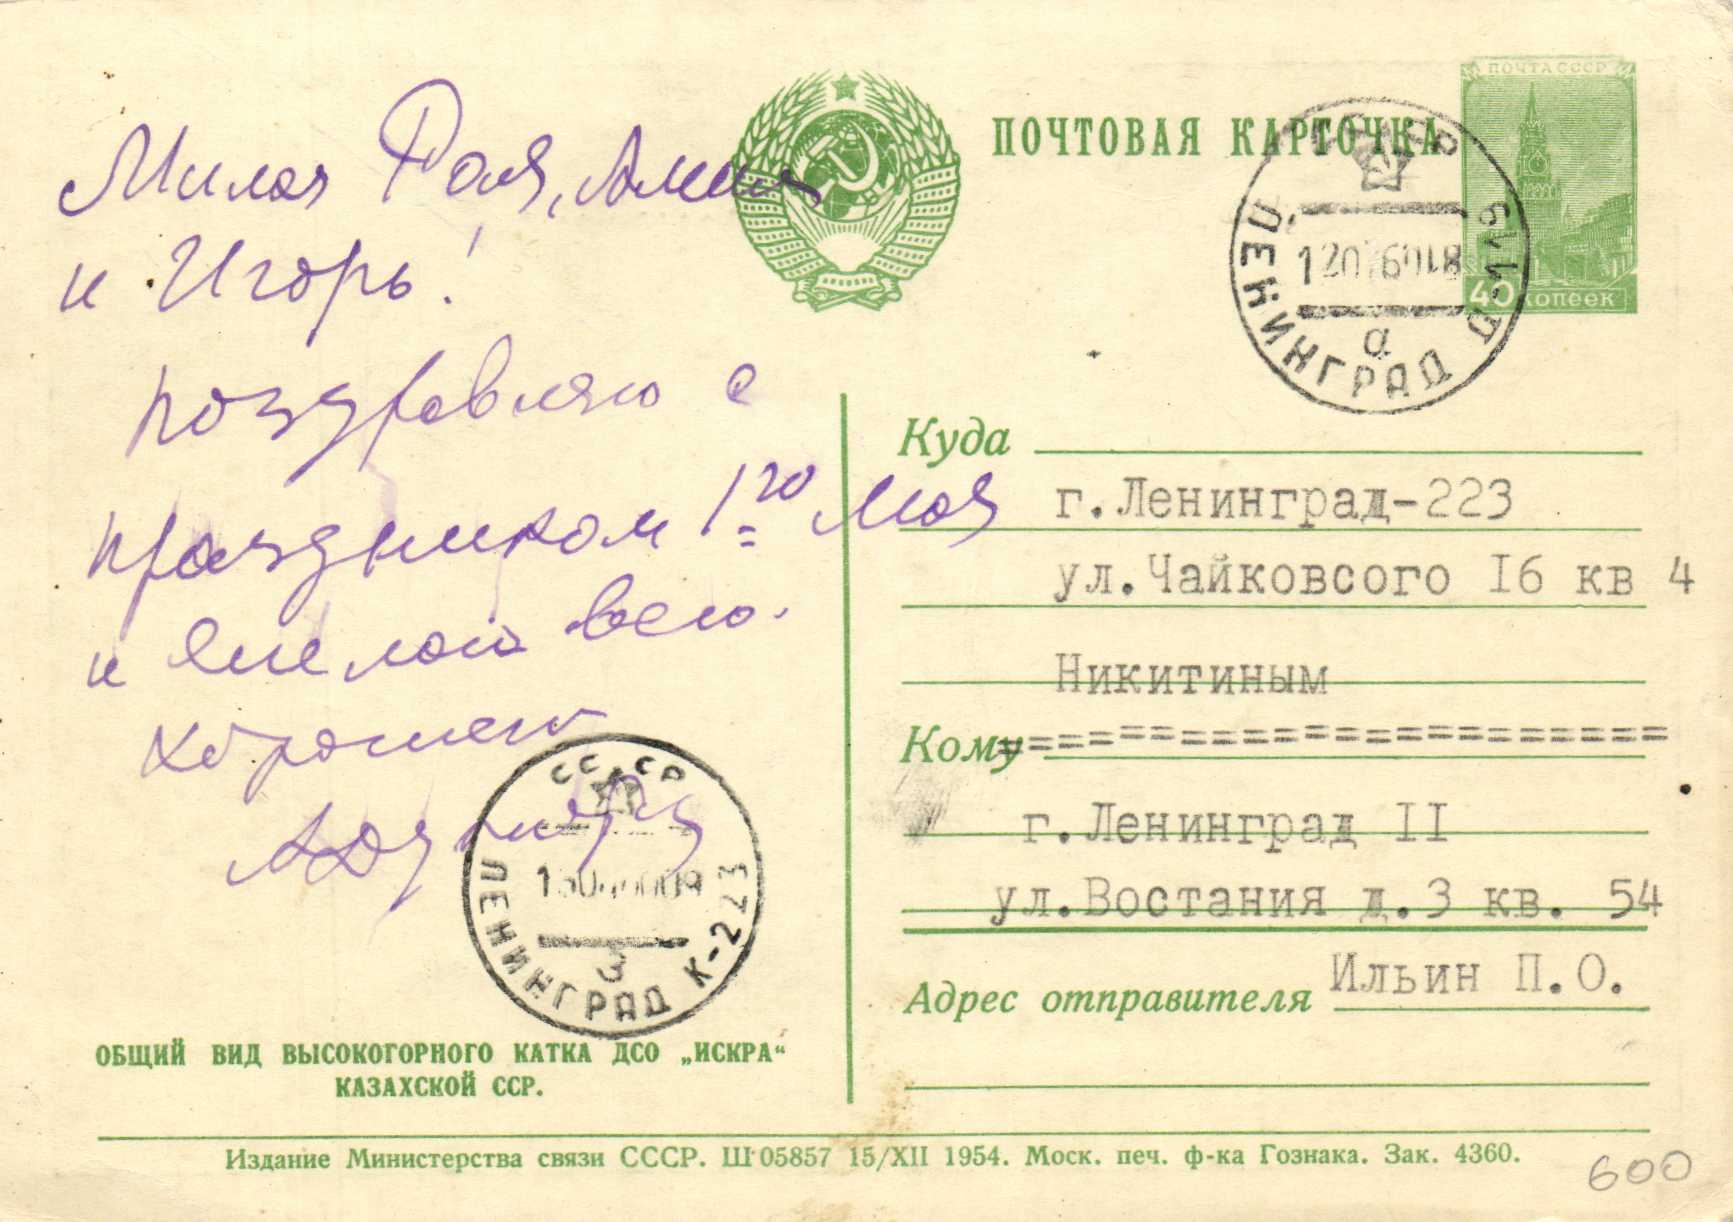 Милая Рая, Алик
и Игорь!
поздравляю с
праздником 1го Мая
и желаю всего
хорошего
ПОЧТОВАЯ КАРТОЧКА
ПОЧТА СССР
40 КОПЕЕК
СССР
ЛЕНИНГРАД Д-119
а
Куда
г.Ленинград-223
ул.Чайковсого I6 кв 4
Никитиным
Кому
====================
г.Ленинград II
ул.Востания д.3 кв. 54
Адрес отправителя Ильин П.О.
СССР
ЛЕНИНГРАД К-223
3
ОБЩИЙ ВИД ВЫСОКОГОРНОГО КАТКА ДСО „ИСКРА“
КАЗАХСКОЙ ССР.
Издание Министерства связи СССР. Ш 05857 15/XII 1954. Моск. печ. ф-ка Гознака. Зак. 4360.
600